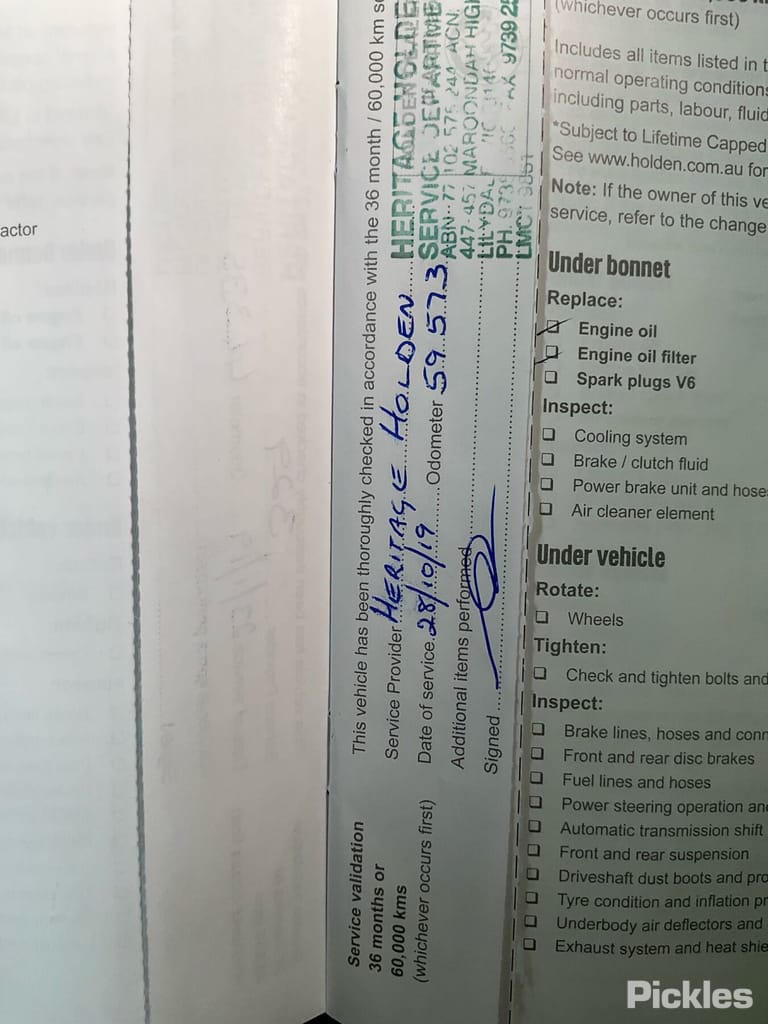 actor
Service validation
36 months or
60,000 kms
(whichever occurs first)
This vehicle has been thoroughly checked in accordance with the 36 month / 60,000 km se
Service Provider HERITAGE HOLDEN
Date of service 28/10/19 Odometer 59 573
Additional items performed
Signed
HERITAGE HOLDE
SERVICE DEPARTME
ABN 77 102 575 244 ACN
447-457 MAROONDAH HIGH
LILYDALE
PH. 973
FAX 9739 25
LMCT 9861
(whichever occurs first)
Includes all items listed in t
normal operating conditions
including parts, labour, fluid
*Subject to Lifetime Capped
See www.holden.com.au for
Note: If the owner of this ve
service, refer to the change
Under bonnet
Replace:
Engine oil
Engine oil filter
Spark plugs V6
Inspect:
Cooling system
Brake / clutch fluid
Power brake unit and hose
Air cleaner element
Under vehicle
Rotate:
Wheels
Tighten:
Check and tighten bolts and
Inspect:
Brake lines, hoses and conn
Front and rear disc brakes
Fuel lines and hoses
Power steering operation and
Automatic transmission shift
Front and rear suspension
Driveshaft dust boots and pro
Tyre condition and inflation pr
Underbody air deflectors and
Exhaust system and heat shie
Pickles